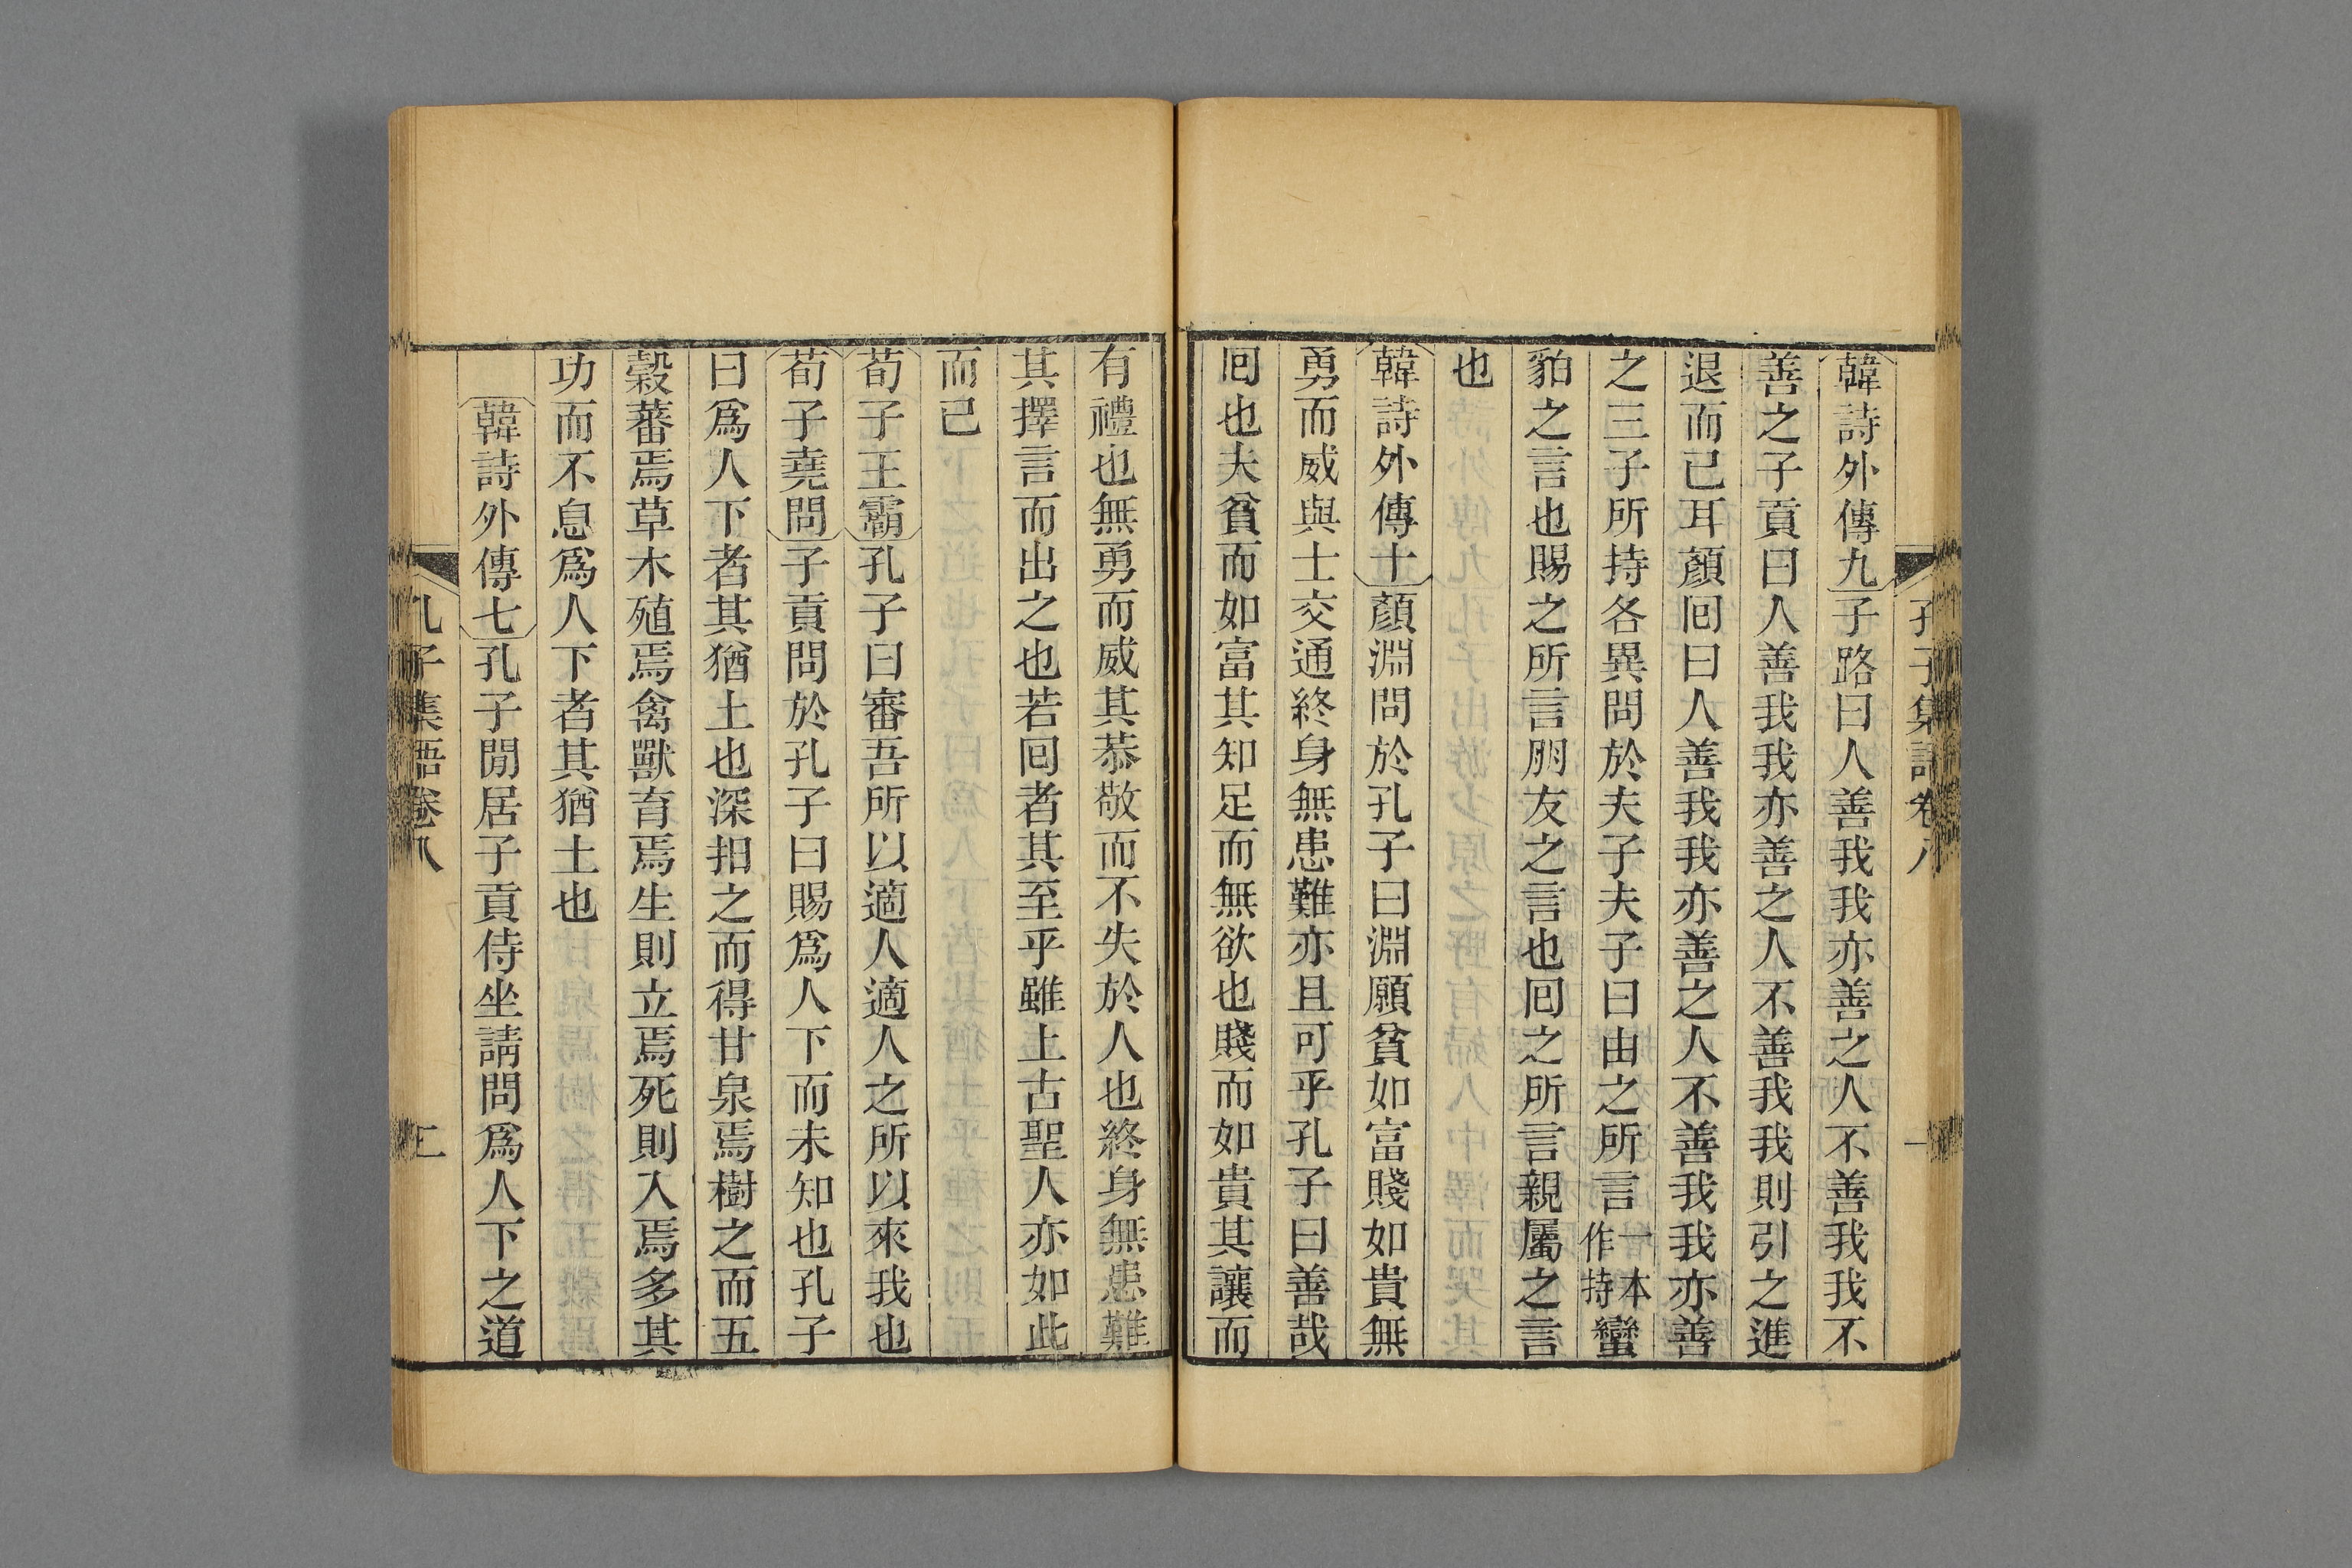 孔子集語卷八
韓詩外傳九子路曰人善我我亦善之人不善我我不
善之子貢曰人善我我亦善之人不善我我則引之進
退而已耳顏囘曰人善我我亦善之人不善我我亦善
之三子所持各異問於夫子夫子曰由之所言一本作持蠻
貊之言也賜之所言朋友之言也囘之所言親屬之言
也
韓詩外傳十顏淵問於孔子曰淵願貧如富賤如貴無
勇而威與士交通終身無患難亦且可乎孔子曰善哉
囘也夫貧而如富其知足而無欲也賤而如貴其讓而
有禮也無勇而威其恭敬而不失於人也終身無患難
其擇言而出之也若囘者其至乎雖上古聖人亦如此
而已
荀子王霸孔子曰審吾所以適人適人之所以來我也
荀子堯問子貢問於孔子曰賜爲人下而未知也孔子
曰爲人下者其猶土也深抇之而得甘泉焉樹之而五
穀蕃焉草木殖焉禽獸育焉生則立焉死則入焉多其
功而不息爲人下者其猶土也
韓詩外傳七孔子閒居子貢侍坐請問爲人下之道
孔子集語卷八